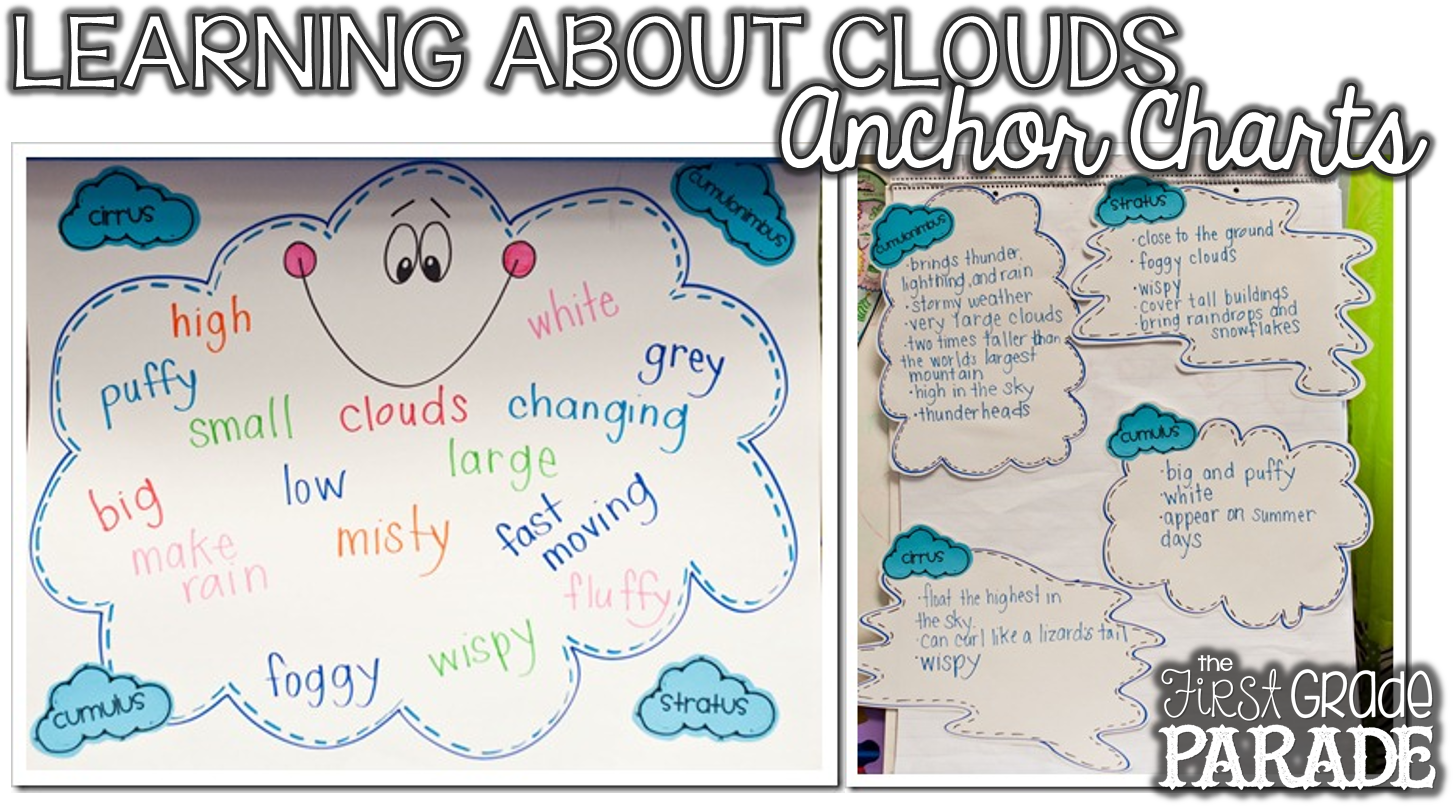 LEARNING ABOUT CLOUDS
Anchor Charts
cirrus
cumulonimbus
high
white
puffy
grey
small
clouds
changing
large
big
low
misty
fast
moving
make
rain
fluffy
foggy
wispy
cumulus
stratus
cumulonimbus
·brings thunder,
lightning, and rain
·stormy weather
·very large clouds
·two times taller than
the world's largest
mountain
·high in the sky
·thunderheads
stratus
·close to the ground
·foggy clouds
·wispy
·cover tall buildings
·bring raindrops and
snowflakes
cumulus
·big and puffy
·white
·appear on summer
days
cirrus
·float the highest in
the sky.
·can curl like a lizard's tail
·wispy
the
First Grade
PARADE